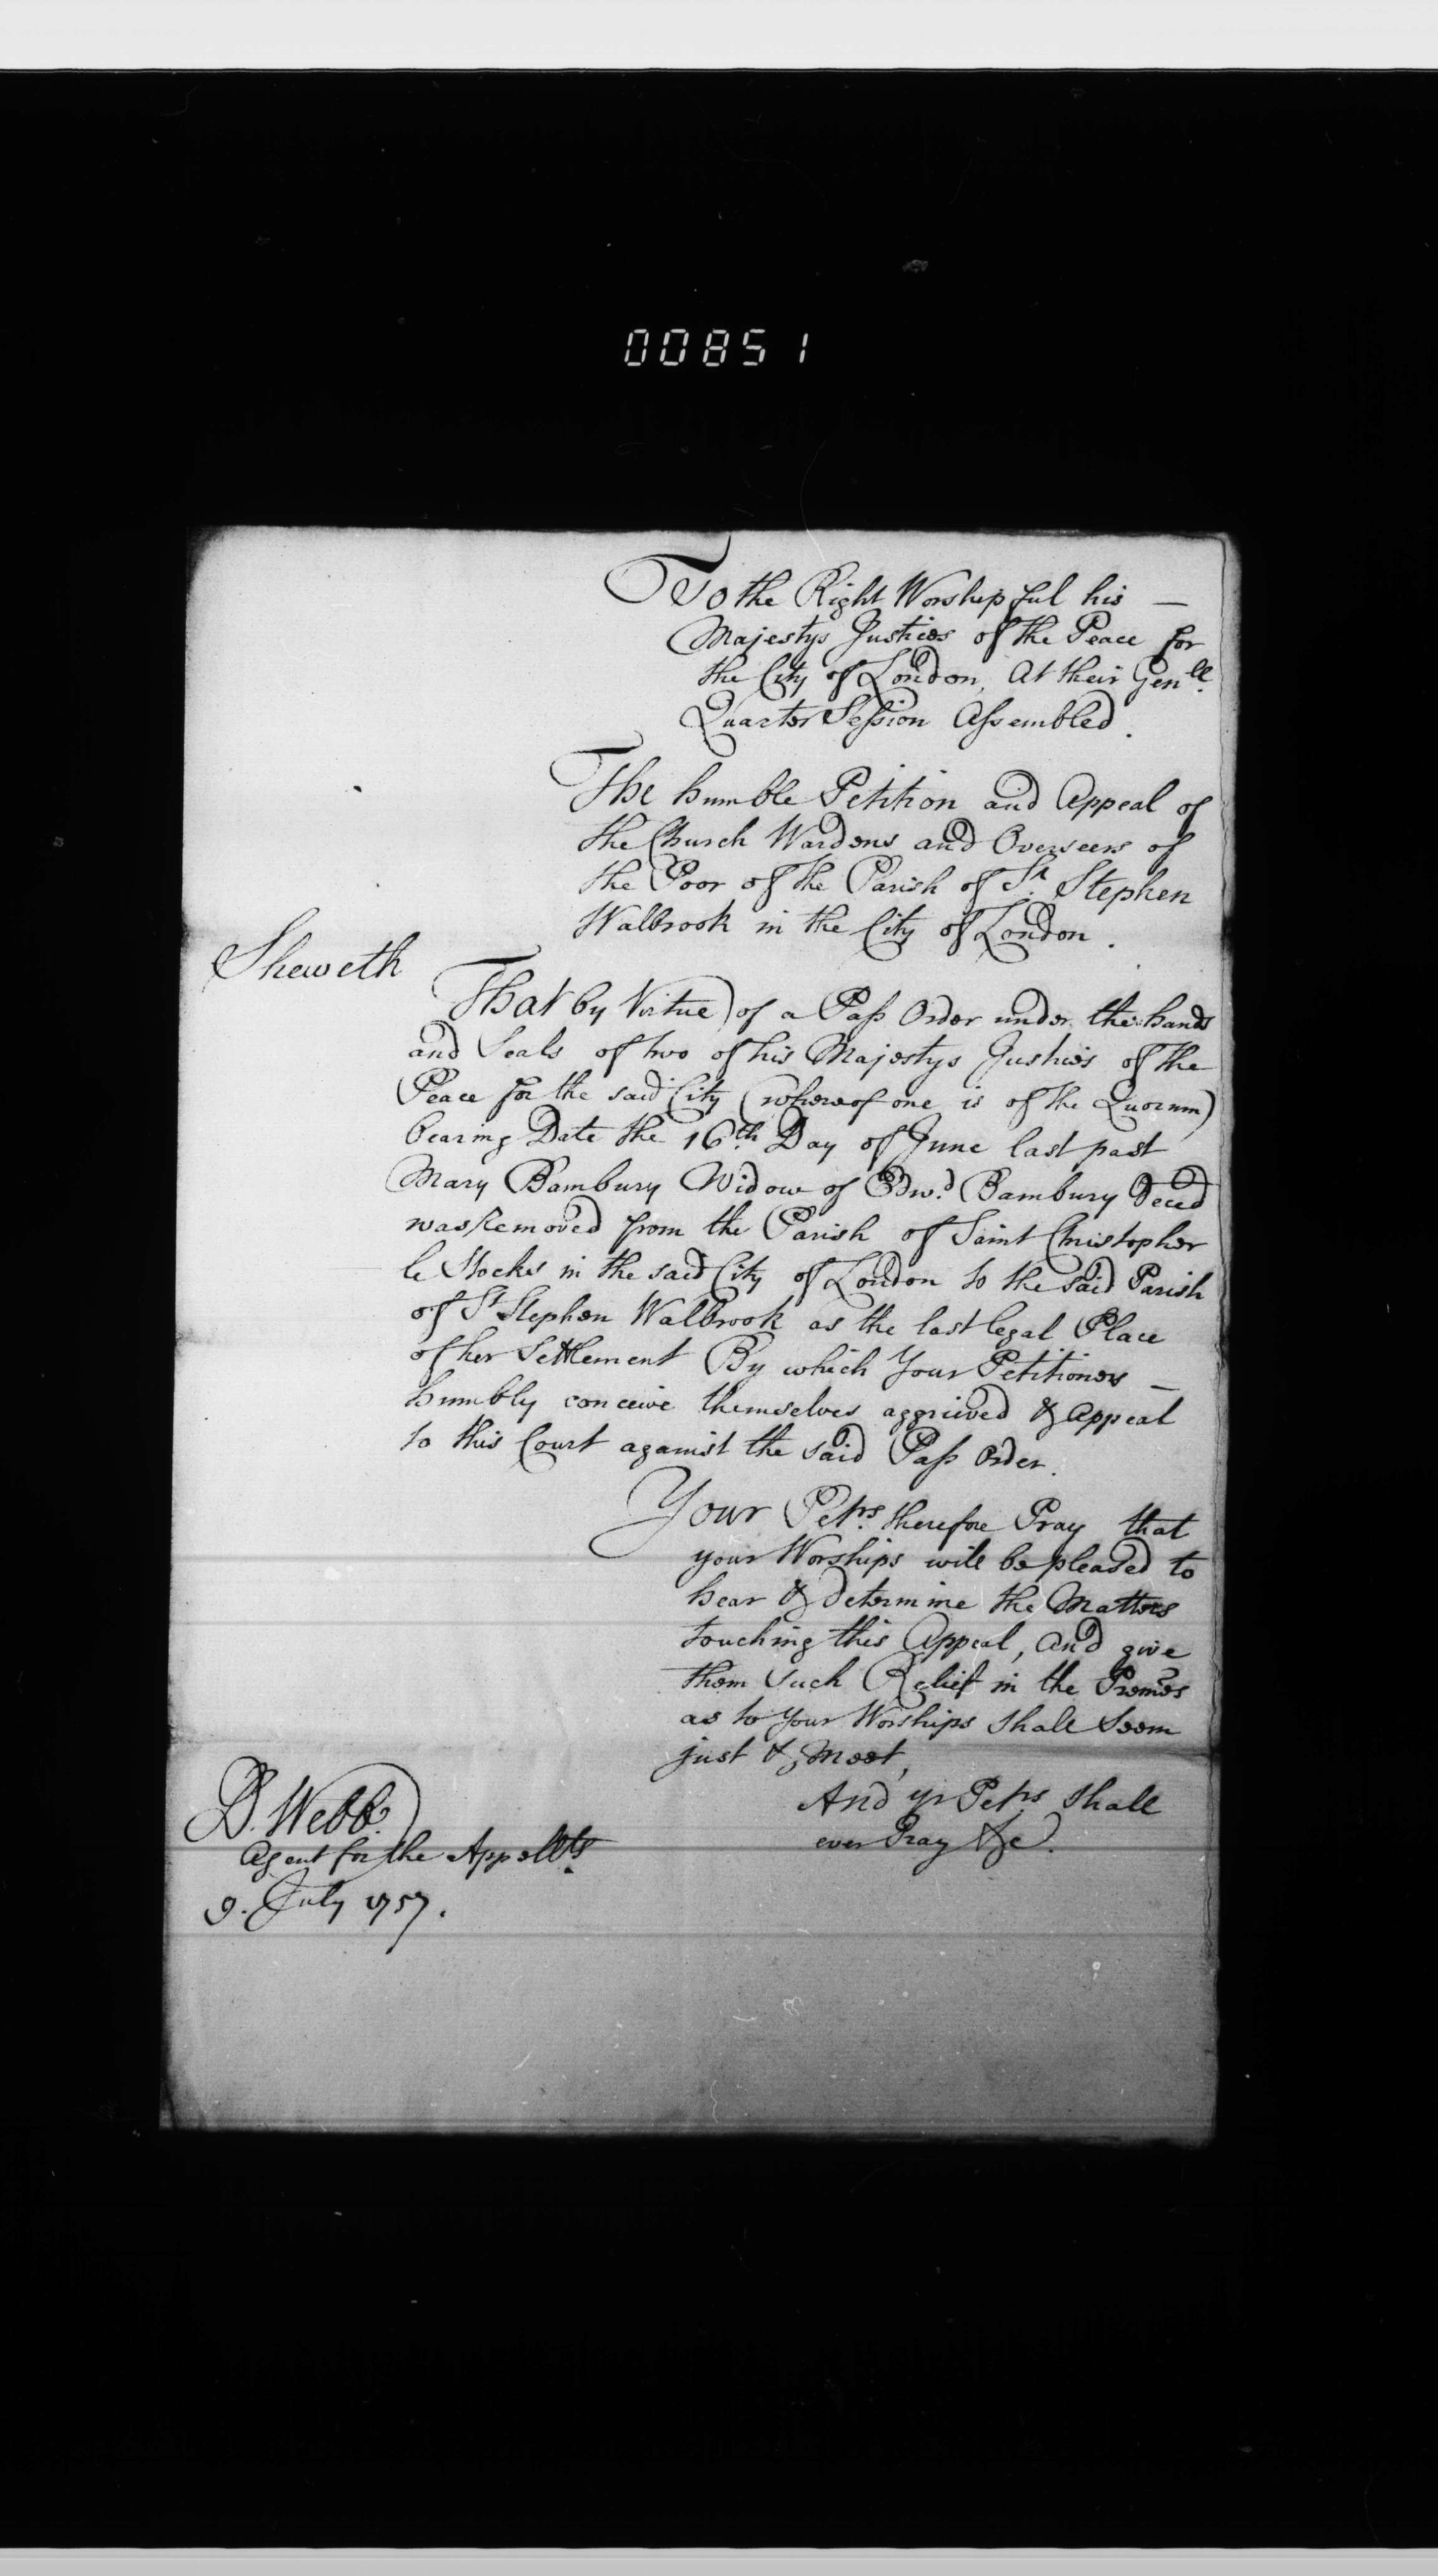 00851
To the Right Worshipful his —
Majestys Justices of the Peace for
the City of London, At their Genll.
Quarter Session Assembled.
The humble Petition and Appeal of
the Church Wardens and Overseers of
the Poor of the Parish of St. Stephen
Walbrook in the City of London.
Sheweth
That by Virtue of a Pass Order under the hands
and Seals of two of his Majestys Justices of the
Peace for the said City (whereof one is of the Quorum)
bearing Date the 16th. Day of June last past
Mary Bambury Widow of Edwd. Bambury Deced
was removed from the Parish of Saint Christopher
le Stocks in the said City of London to the said Parish
of St. Stephen Walbrook as the last legal Place
of her Settlement By which Your Petitioners —
humbly conceive themselves aggrieved & Appeal
to this Court against the said Pass Order.
Your Petrs. therefore Pray that
your Worships will be pleased to
hear & determine the Matters
touching this Appeal, and give
them such Relief in the Premes
as to Your Worships shall Seem
just & Meet,
And yr Petrs shall
ever Pray &c.
B. Webb.
Agent for the Appellts.
9. July 1757.